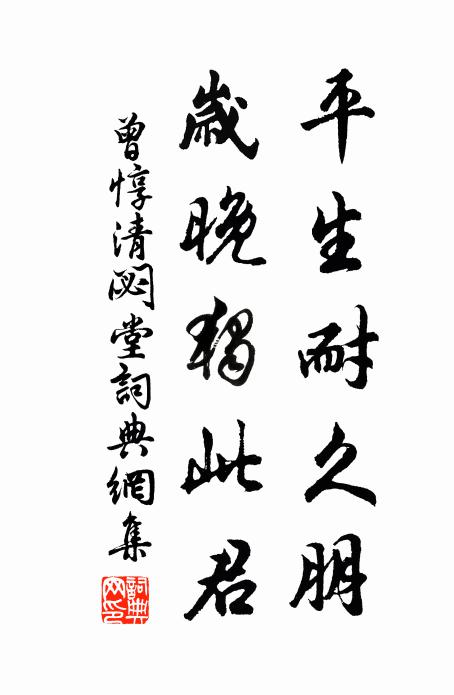 平生耐久朋
歲晚獨此君
曾惇清閟堂詞典網集
詞典網印